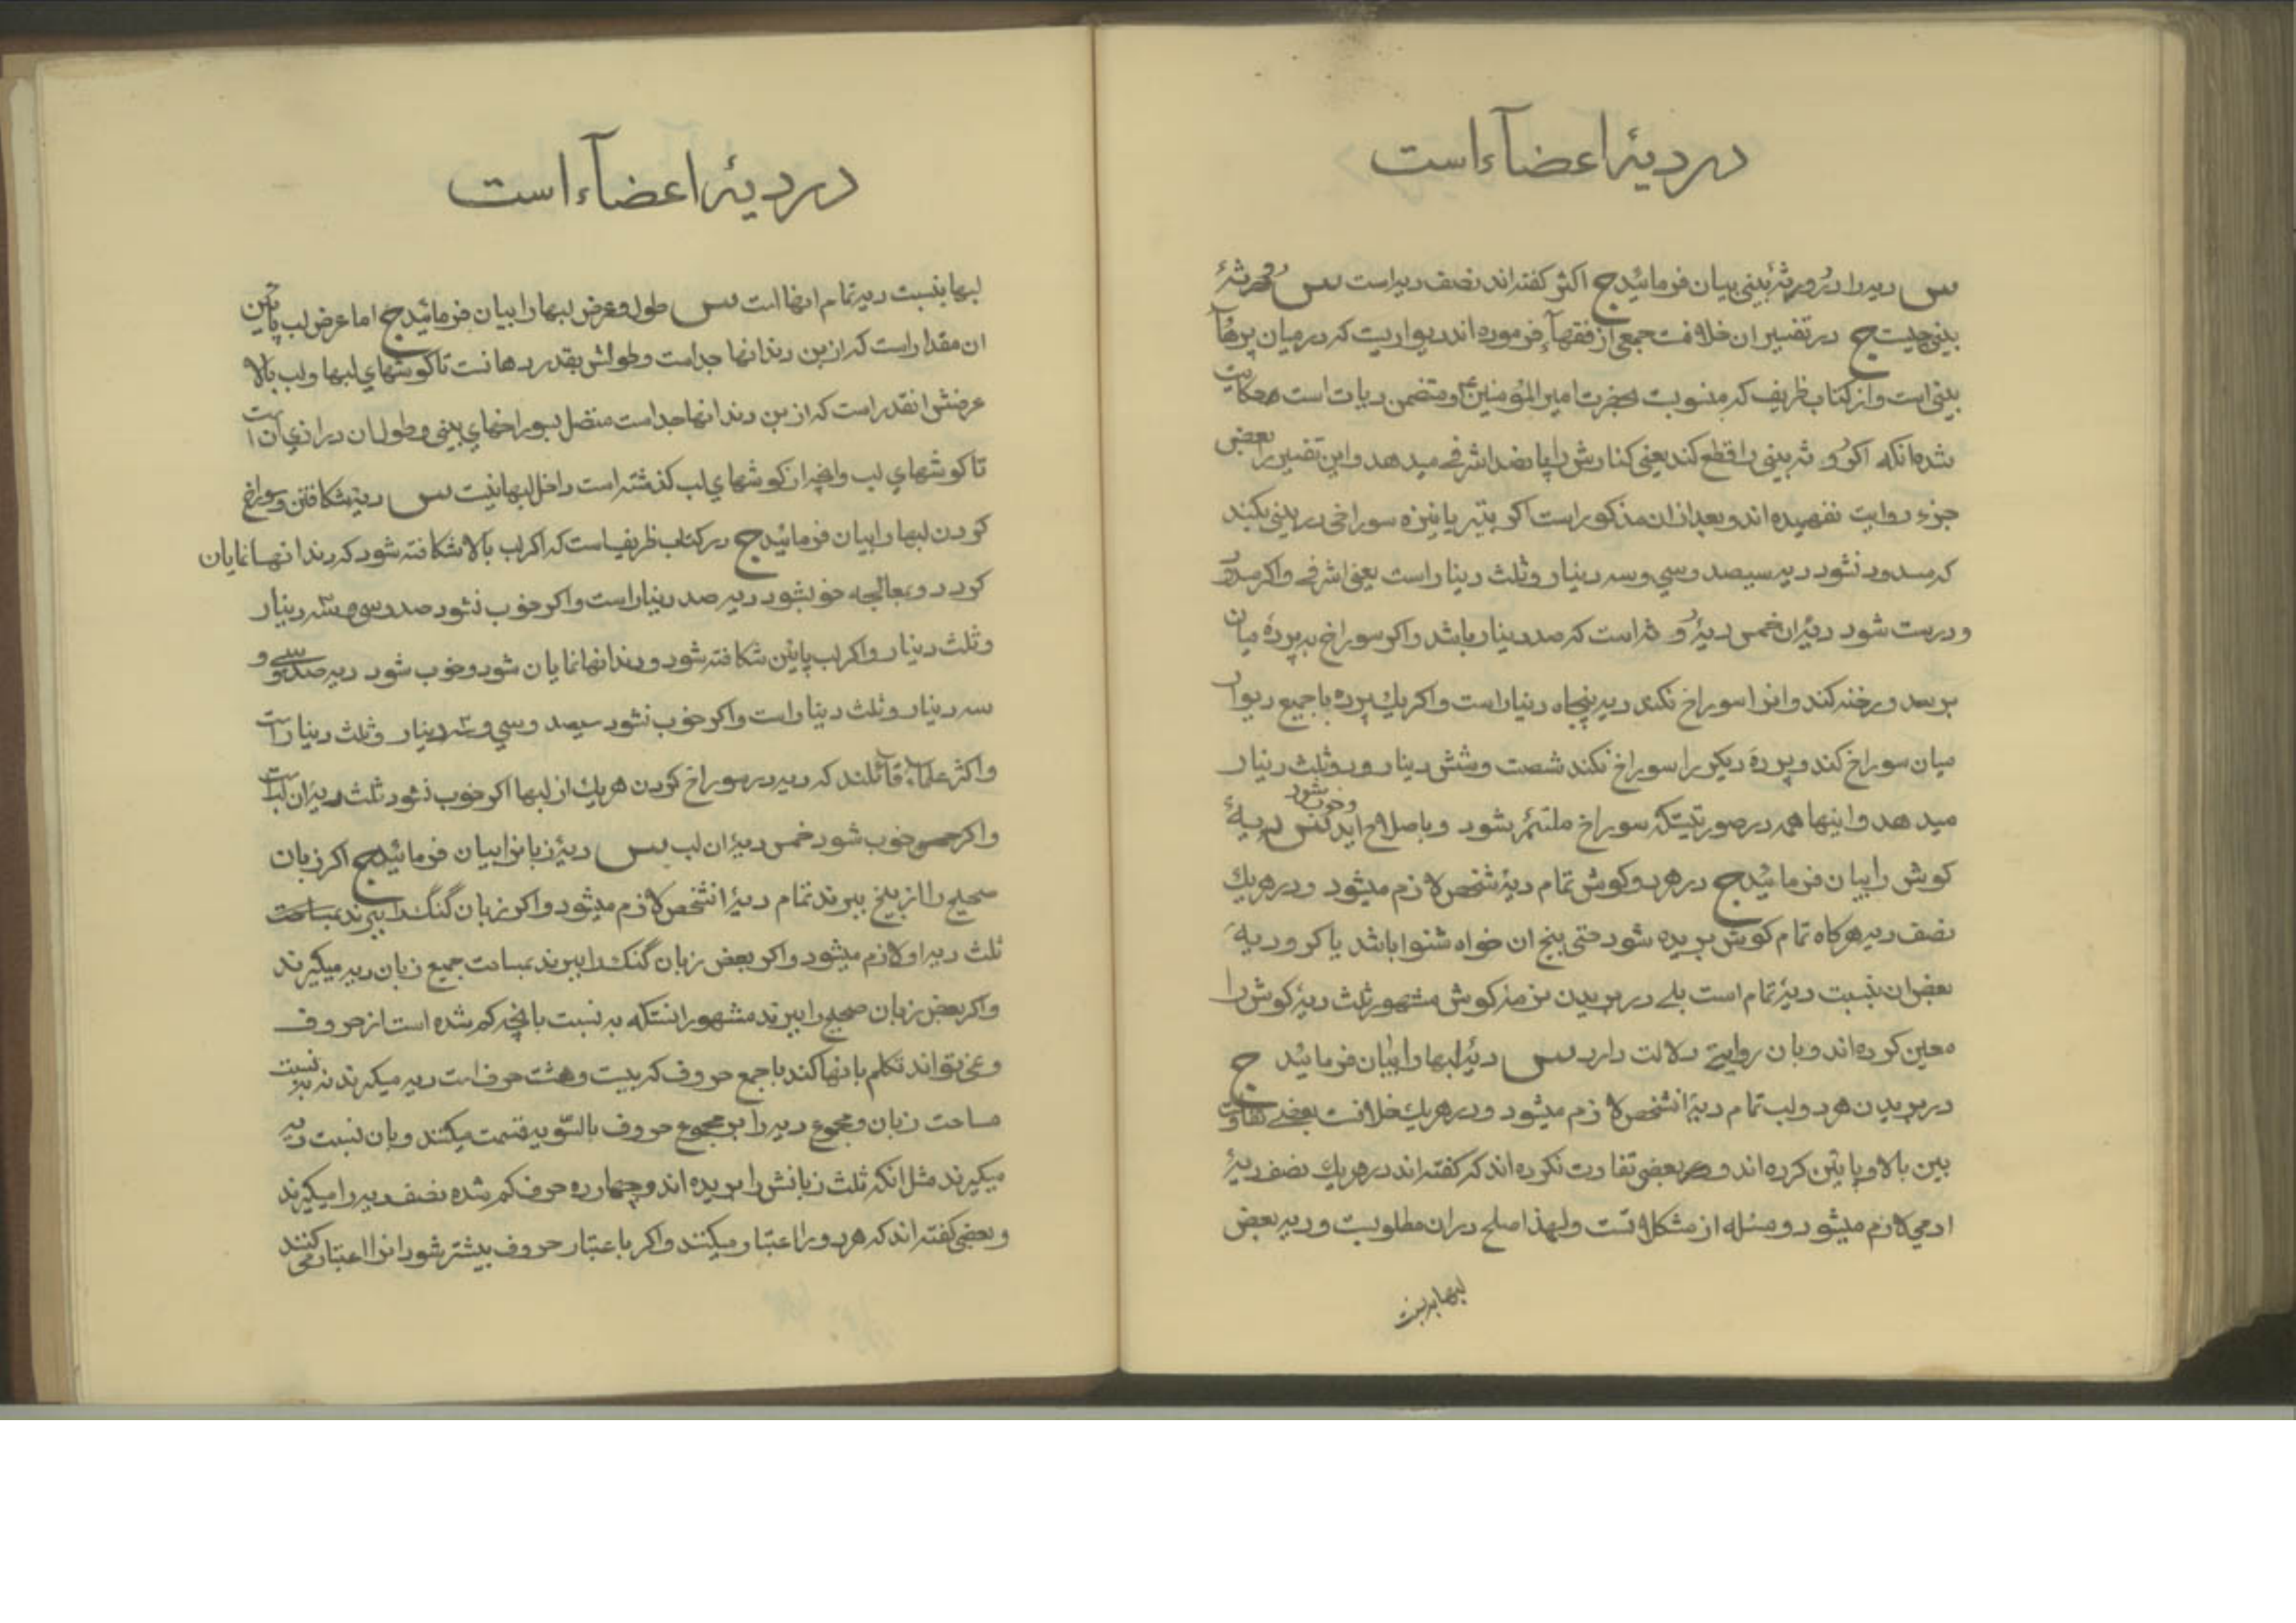 در دیۀ اعضآء است
س دیه را در روثۀ بینی بیان فرمائید ج اکثر کفته‌اند نصف دیه است س روثۀ
بینی چیست ج در تفسیر ان خلافست جمعی از فقهآء فرموده‌اند دیواریست که در میان پرهای
بینی است و از کتاب ظریف که منسوبست بحضرت امیر المؤمنین ع و متضمن دیات است حکایت
شده انکه اکر روثه بینی را قطع کند یعنی کنارش را پانصد اشرفی میدهد و این تفسیر را بعضی
جزء روایت نفهمیده‌اند و بعد از ان مذکور است اکر بتیر یا نیزه سوراخی در بینی بکند
که مسدود نشود دیه سیصد و سی و سه دینار و ثلث دینار است یعنی اشرفی و اکر مسدود
و درست شود دیۀ ان خمس دیۀ روثه است که صد دینار باشد و اکر سوراخ به پردۀ میان
برسد و رخنه کند و انرا سوراخ نکند دیه پنجاه دینار است و اکر یك پرده با جمیع دیوار
میان سوراخ کند و پردۀ دیکر را سوراخ نکند شصت و شش دینار و دو ثلث دینار
میدهد و اینها همه در صورتیستکه سوراخ ملتئم بشود و باصلاح اید و خوب شود س دیۀ
کوش را بیان فرمائید ج در هر دو کوش تمام دیۀ شخص لازم میشود و در هر یك
نصف دیه هرکاه تمام کوش بریده شود حتی بیخ ان خواه شنوا باشد یا کر و دیۀ
بعض ان بنسبت دیۀ تمام است بلی در بریدن نرمه کوش مشهور ثلث دیۀ کوش را
معین کرده‌اند و بان روایتی دلالت دارد س دیۀ لبها را بیان فرمائید ج
در بریدن هر دو لب تمام دیۀ انشخص لازم میشود و در هر یك خلافست بعضی تفاوت
بین بالا و پایین کرده‌اند و بعضی تفاوت نکرده‌اند که کفته‌اند در هر یك نصف دیۀ
ادمی لازم میشود و مسئله از مشکلاتست و لهذا صلح در ان مطلوبست و دیه بعض
لبها بنسبت
در دیۀ اعضآء است
لبها بنسبت دیه تمام انها است س طول و عرض لبها را بیان فرمائید ج اما عرض لب پایین
ان مقدار است که از بن دندانها جداست و طولش بقدر دهانست تا کوشهای لبها و لب بالا
عرضش انقدر است که از بن دندانها جداست متصل بسوراخهای بینی و طول ان درازی ان است
تا کوشهای لب و انچه از کوشهای لب کذشته است داخل لبها نیست س دیۀ شکافتن و سوراخ
کردن لبها را بیان فرمائید ج در کتاب ظریف است که اکر لب بالا شکافته شود که دندانها نمایان
کردد و بمعالجه خوب شود دیه صد دینار است و اکر خوب نشود صد و سی و سه دینار
و ثلث دینار و اکر لب پایین شکافته شود و دندانها نمایان شود و خوب شود دیه صد و سی و
سه دینار و ثلث دینار است و اکر خوب نشود سیصد و سی و سه دینار و ثلث دینار است
و اکثر علماء قائلند که دیه در سوراخ کردن هر یك از لبها اکر خوب نشود ثلث دیۀ ان لبست
و اکر خوب شود خمس دیۀ ان لب س دیۀ زبانرا بیان فرمائید ج اکر زبان
صحیح را از بیخ ببرند تمام دیۀ انشخص لازم میشود و اکر زبان گنك را ببرند
ثلث دیه او لازم میشود و اکر بعض زبان گنك را ببرند بمساحت جمیع زبان دیه میکیرند
و اکر بعض زبان صحیح را ببرند مشهور انستکه به نسبت بانچه کم شده است از حروف
و نمی‌تواند تکلم بانها کند با جمع حروف که بیست و هشت حرف است دیه میکیرند نه به نسبت
مساحت زبان و مجموع دیه را بر مجموع حروف بالسّویه قسمت میکنند و بان نسبت دیه
میکیرند مثل انکه ثلث زبانش را بریده‌اند و چهارده حرف کم شده نصف دیه را میکیرند
و بعضی کفته‌اند که هر دو را اعتبار میکنند و اکر باعتبار حروف بیشتر شود انرا اعتبار می کنند